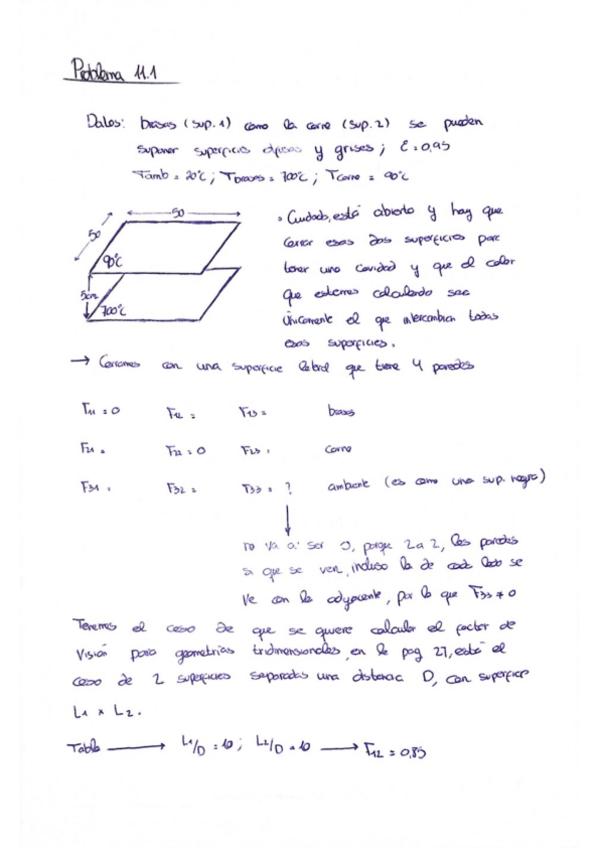 Problema 11.1
Datos: brasas (sup.1) como la carne (sup.2) se pueden
suponer superficies opacas y grises; ε=0,95
Tamb = 20°C; Tbrasas = 700°C; Tcarne = 90°C
50
50
90°C
5cm
700°C
• Cuidado, está abierto y hay que
cerrar esas dos superficies para
tener una cavidad y que el calor
que estemos calculando sea
únicamente el que intercambian todas
esas superficies.
→ Cerramos con una superficie lateral que tiene 4 paredes
F11 = 0 F12 = F13 = brasas
F21 = F22 = 0 F23 = carne
F31 = F32 = F33 = ? ambiente (es como una sup. negra)
no va a ser 0, porque 2 a 2, las paredes
si que se ven, incluso la de cada lado se
ve con la adyacente, por lo que F33 ≠ 0
Tenemos el caso de que se quiere calcular el factor de
visión para geometrías tridimensionales, en la pag 27, está el
caso de 2 superficies separadas una distancia D, con superficie
L1 x L2.
Tabla → L1/D = 10; L2/D = 10 → F12 = 0,85